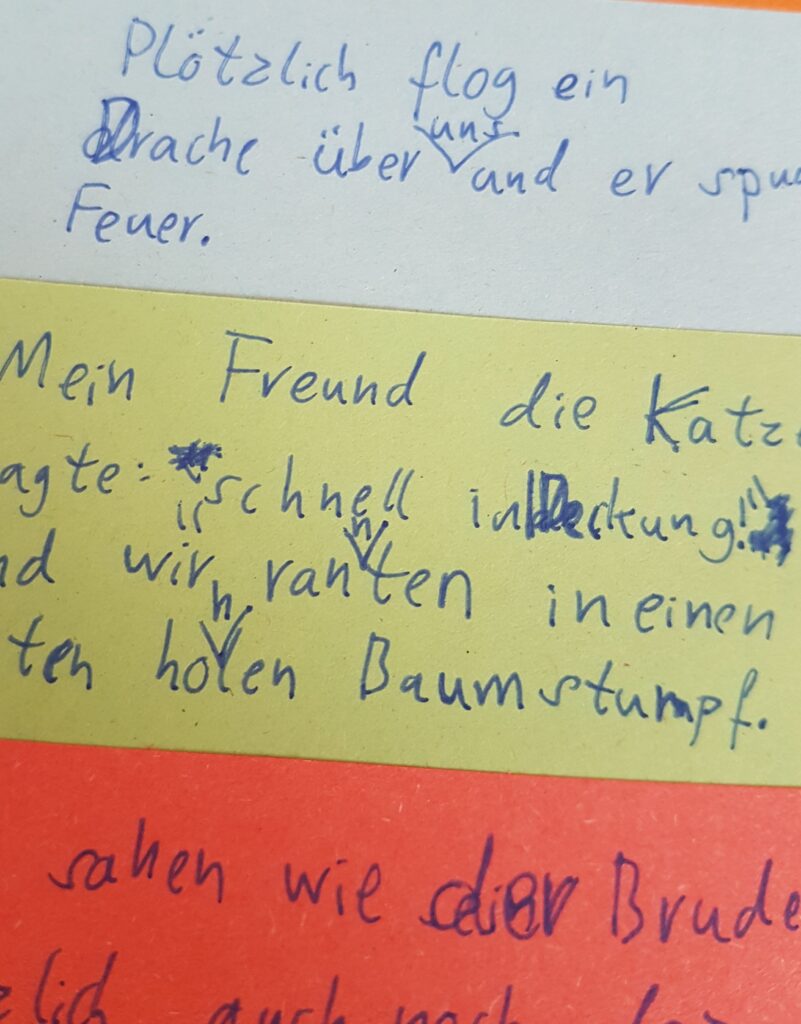 Plötzlich flog ein
Drache über uns und er spu
Feuer.
Mein Freund die Katze
agte: "schnell in Deckung!"
nd wir rannten in einen
ten hohlen Baumstumpf.
sahen wie der Brude
zlich auch noch